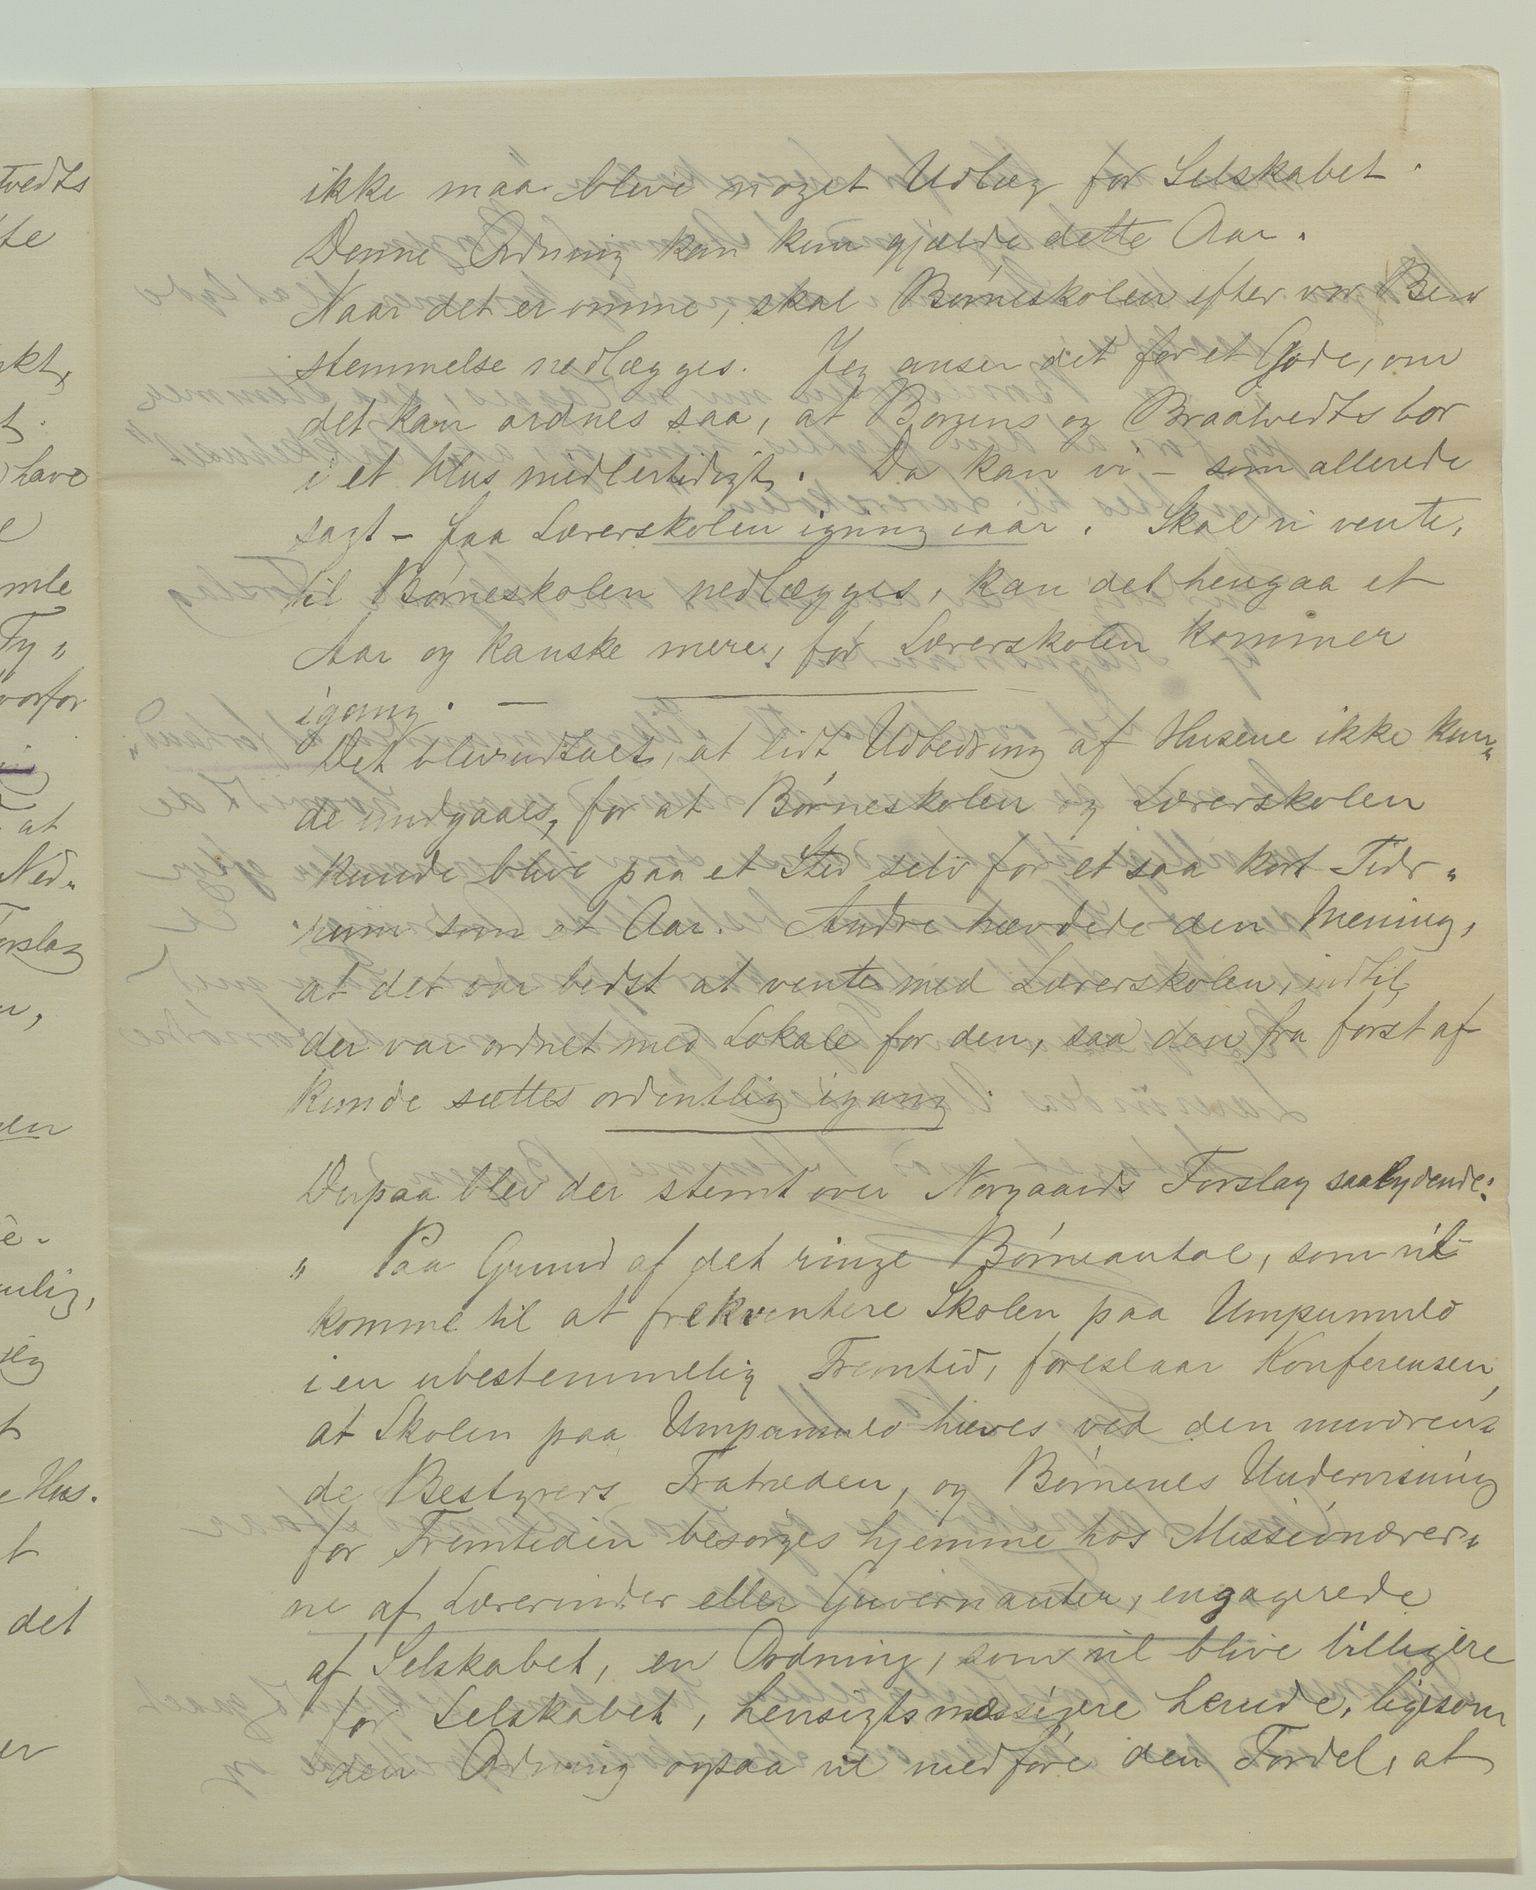 ikke maa blive noget Udlæg for Selskabet.
Denne Ordning kan kun gjælde dette Aar.
Naar det er omme, skal Børneskolen efter vor Be„
stemmelse nedlægges. Jeg anser det for et Gode, om
det kan ordnes saa, at Borgens og Braatvedts bor
i et Hus midlertidigt. Da kan vi – som allerede
sagt – faa Lærerskolen igang iaar. Skal vi vente,
til Børneskolen nedlægges, kan det hengaa et
Aar og kanske mere, før Lærerskolen kommer
igang. —
Det blev udtalt, at lidt Udbedring af Husene ikke kun„
de undgaaes, for at Børneskolen og Lærerskolen
kunde blive paa et Sted selv for et saa kort Tids„
rum som et Aar. Andre hævdede den Mening,
at det var bedst at vente med Lærerskolen, indtil
der var ordnet med Lokale for den, saa den fra først af
kunde sættes ordentlig igang.
Derpaa blev der stemt over Norgaards Forslag saalydende:
„ Paa Grund af det ringe Børneantal, som vil
komme til at frekventere Skolen paa Umpumulo
i en ubestemmelig Fremtid, foreslaar Konferensen,
at Skolen paa Umpumulo hæves ved den nuværen„
de Bestyrers Fratræden, og Børnenes Undervisning
for Fremtiden besørges hjemme hos Missionærer„
ne af Lærerinder eller Guvernanter, engagerede
af Selskabet, en Ordning, som vil blive billigere
for Selskabet, hensigtsmæssigere herude, ligesom
den Ordning ogsaa vil medføre den Fordel, at
tvedts
te
kt,
t.
have
e
mle
Ty„
vorfor
at
Ned„
Forslag
n,
en
e-
mlig,
jeg
t
e Hus.
t
det
er